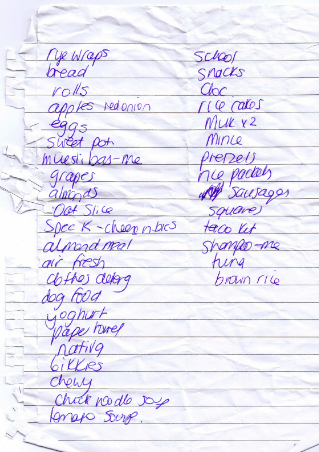 rye wraps
bread
rolls
apples red onion
eggs
sweet pot
muesli bas-me
grapes
almonds
oat slice
Spec K - cheer n bics
almond meal
air fresh
clothes deterg
dog food
yoghurt
paper towel
bikkies
chewy
chick noodle soup
tomato soup.
School
snacks
choc
rice cakes
Milk x2
Mince
pretzels
rice packets
Sausages
squares
taco kit
Shampoo-me
tuna
brown rice